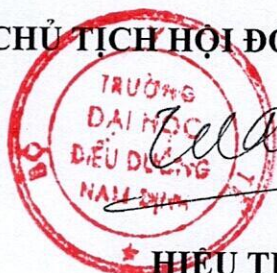 CHỦ TỊCH HỘI ĐỒ
TRƯỜNG
ĐẠI HỌC
ĐIỀU DƯỠNG
NAM ĐỊNH
BỘ
HIỆU T